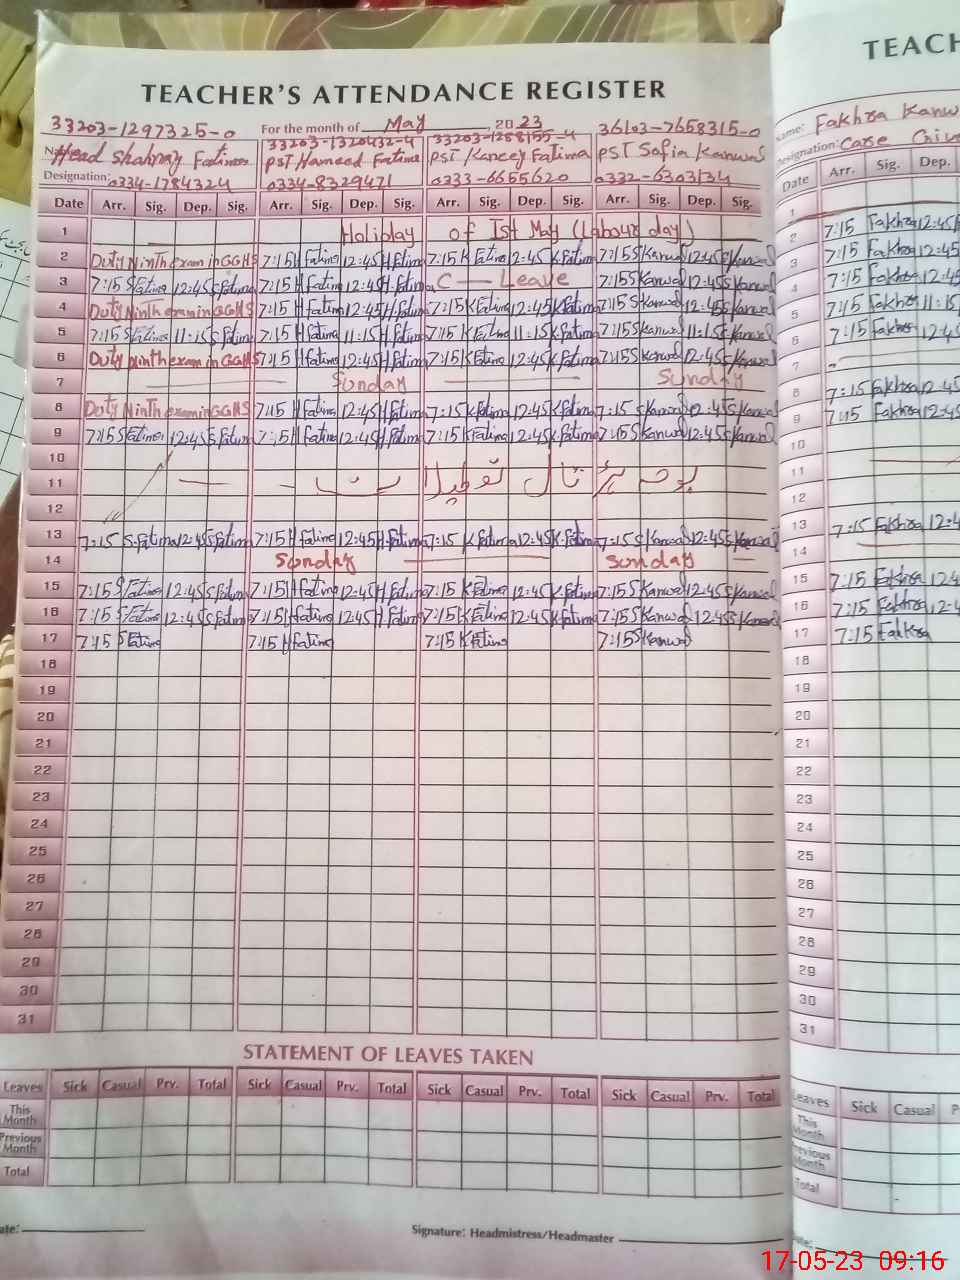 TEACHER'S ATTENDANCE REGISTER
33203-1297325-0 For the month of May 2023 36103-7658315-0
33203-1320432-4 33203-1288155-4
Head Shahnaz Fatima PST Hameed Fatima PST Kaneez Fatima PST Sofia Kanwal
Designation: 0334-1784324 0334-8329471 0333-6655620 0332-6303134
Date Arr. Sig. Dep. Sig. Arr. Sig. Dep. Sig. Arr. Sig. Dep. Sig. Arr. Sig. Dep. Sig.
1 Holiday of Ist May (Labour day)
2 Duty Ninth exam in GGHS 7:15 H Fatima 12:45 H.Fatima 7:15 K Fatima 12:45 K Fatima 7:15 S Kanwal 12:45 S Kanwal
3 7:15 S Fatima 12:45 S Fatima 7:15 H Fatima 12:45 H.Fatima C — Leave 7:15 S Kanwal 12:45 S Kanwal
4 Duty Ninth exam in GGHS 7:15 H Fatima 12:45 H.Fatima 7:15 K Fatima 12:45 K Fatima 7:15 S Kanwal 12:45 S Kanwal
5 7:15 S Fatima 11:15 S Fatima 7:15 H Fatima 11:15 H Fatima 7:15 K Fatima 11:15 K.Fatima 7:15 S Kanwal 11:15 S Kanwal
6 Duty Ninth exam in GGHS 7:15 H Fatima 12:45 H Fatima 7:15 K Fatima 12:45 K Fatima 7:15 S Kanwal 12:45 S Kanwal
7 Sunday Sunday
8 Duty Ninth exam in GGHS 7:15 H Fatima 12:45 H Fatima 7:15 K Fatima 12:45 K Fatima 7:15 S Kanwal 12:45 S Kanwal
9 7:15 S Fatima 12:45 S Fatima 7:15 H Fatima 12:45 H Fatima 7:15 K Fatima 12:45 K.Fatima 7:15 S Kanwal 12:45 S Kanwal
10
11 بوجہ ہڑتال تعطیلات
12
13 7:15 S.Fatima 12:45 S Fatima 7:15 H Fatima 12:45 H.Fatima 7:15 K Fatima 12:45 K.Fatima 7:15 S Kanwal 12:45 S Kanwal
14 Sunday Sunday
15 7:15 S Fatima 12:45 S Fatima 7:15 H Fatima 12:45 H Fatima 7:15 K Fatima 12:45 K Fatima 7:15 S Kanwal 12:45 S Kanwal
16 7:15 S Fatima 12:45 S Fatima 7:15 H Fatima 12:45 H Fatima 7:15 K Fatima 12:45 K Fatima 7:15 S Kanwal 12:45 S Kanwal
17 7:15 S Fatima 7:15 H Fatima 7:15 K Fatima 7:15 S Kanwal
18
19
20
21
22
23
24
25
26
27
28
29
30
31
STATEMENT OF LEAVES TAKEN
Leaves Sick Casual Prv. Total Sick Casual Prv. Total Sick Casual Prv. Total Sick Casual Prv. Total
This Month
Previous Month
Total
Signature: Headmistress/Headmaster
TEACH
Fakhra Kanw
Designation:
Date Arr. Sig. Dep.
1
2 7:15 Fakhra 12:45
3 7:15 Fakhra 12:45
4 7:15 Fakhra 12:45
5 7:15 Fakhra 11:15
6 7:15 Fakhra 12:45
7
8 7:15 Fakhra 12:45
9 7:15 Fakhra 12:45
10
11
12
13 7:15 Fakhra 12:4
14
15 7:15 Fakhra 12:4
16 7:15 Fakhra 12:4
17 7:15 Fakhra
18
19
20
21
22
23
24
25
26
27
28
29
30
31
Leaves Sick Casual P
This Month
Previous Month
Total
17-05-23 09:16